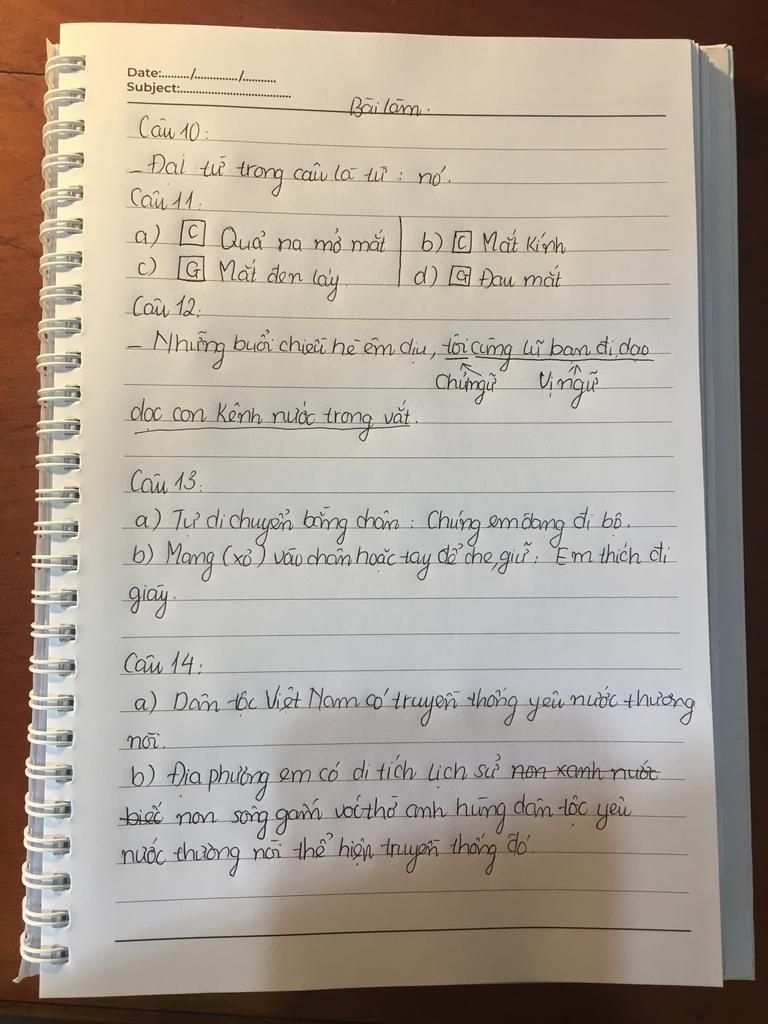 Date:........./............../...........
Subject:...................................
Bài làm.
Câu 10:
- Đại từ trong câu là từ: nó.
Câu 11:
a) C Quả na mở mắt
b) C Mắt kính
c) G Mắt đen láy.
d) G Đau mắt
Câu 12:
- Những buổi chiều hè êm dịu, tôi cùng lũ bạn đi dạo
Chủ ngữ Vị ngữ
dọc con kênh nước trong vắt.
Câu 13:
a) Tự di chuyển bằng chân: Chúng em đang đi bộ.
b) Mang (xỏ) vào chân hoặc tay để che, giữ: Em thích đi
giày.
Câu 14:
a) Dân tộc Việt Nam có truyền thống yêu nước thương
nòi.
b) Địa phương em có di tích lịch sử non xanh nước
biếc non sông gấm vóc thờ anh hùng dân tộc yêu
nước thương nòi thể hiện truyền thống đó.